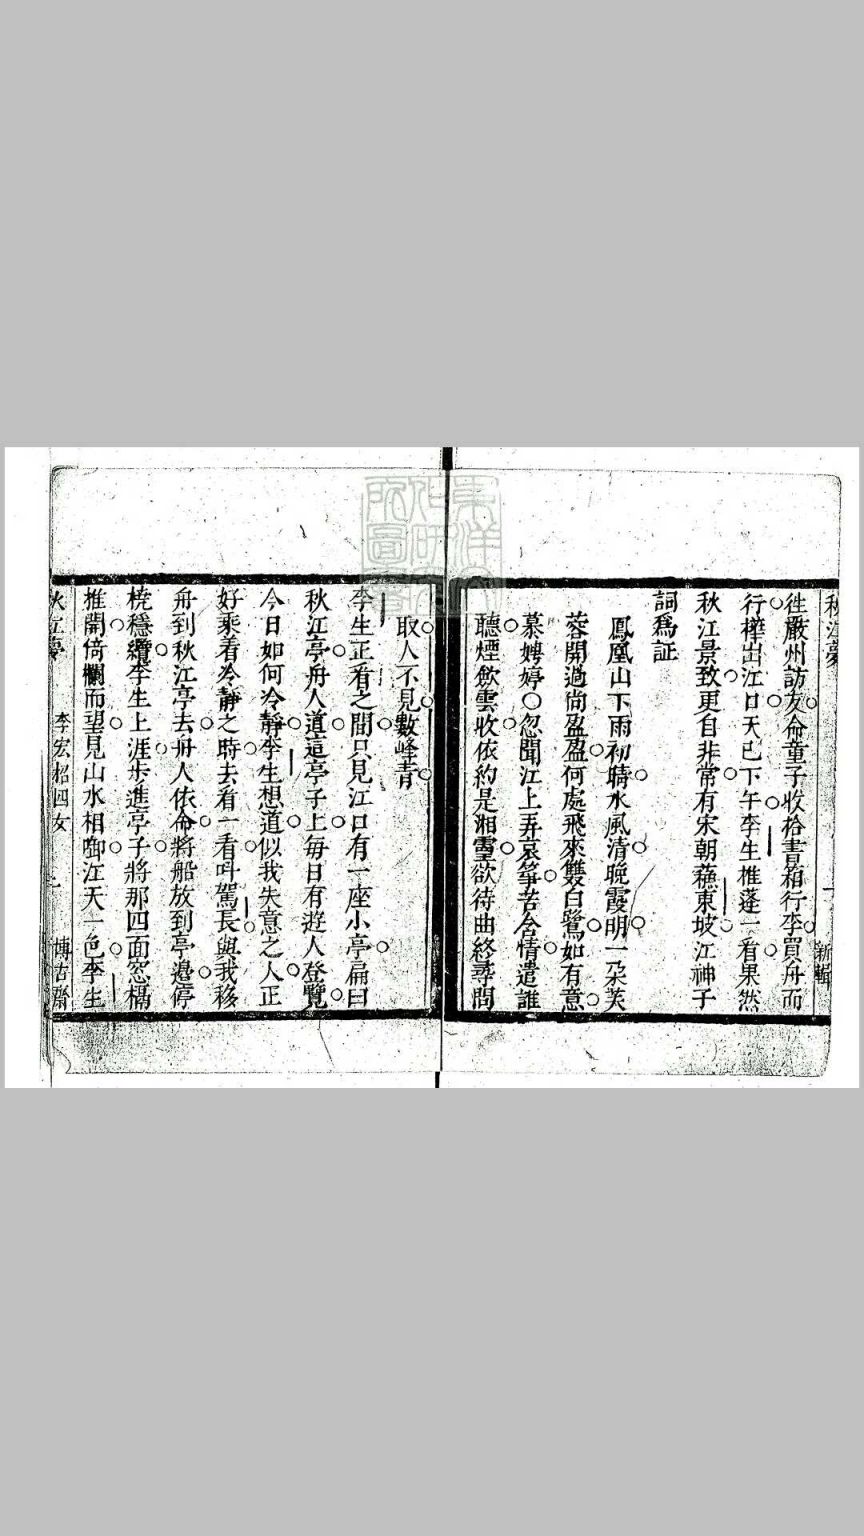 秋江夢 新輯
徃嚴州訪友命童子收拾書箱行李買舟而
行擇出江口天已下午李生推蓬一看果然
秋江景致更自非常有宋朝蘓東坡江神子
詞爲証
鳳凰山下雨初晴水風清晚霞明一朶芙
蓉開過尚盈盈何處飛來雙白鷺如有意
慕娉婷〇忽聞江上弄哀箏苦含情遣誰
聽煙歛雲收依約是湘靈欲待曲終尋問
取人不見數峰青
李生正看之間只見江口有一座小亭扁曰
秋江亭舟人道這亭子上每日有遊人登覽
今日如何冷靜李生想道似我失意之人正
好乘着冷靜之時去看一看叫駕長與我移
舟到秋江亭去舟人依命將船放到亭邉停
橈穩纜李生上涯歩進亭子將那四面窓槅
推開倚欄而望見山水相啣江天一色李生
秋江夢 李宏招四女 博古齋